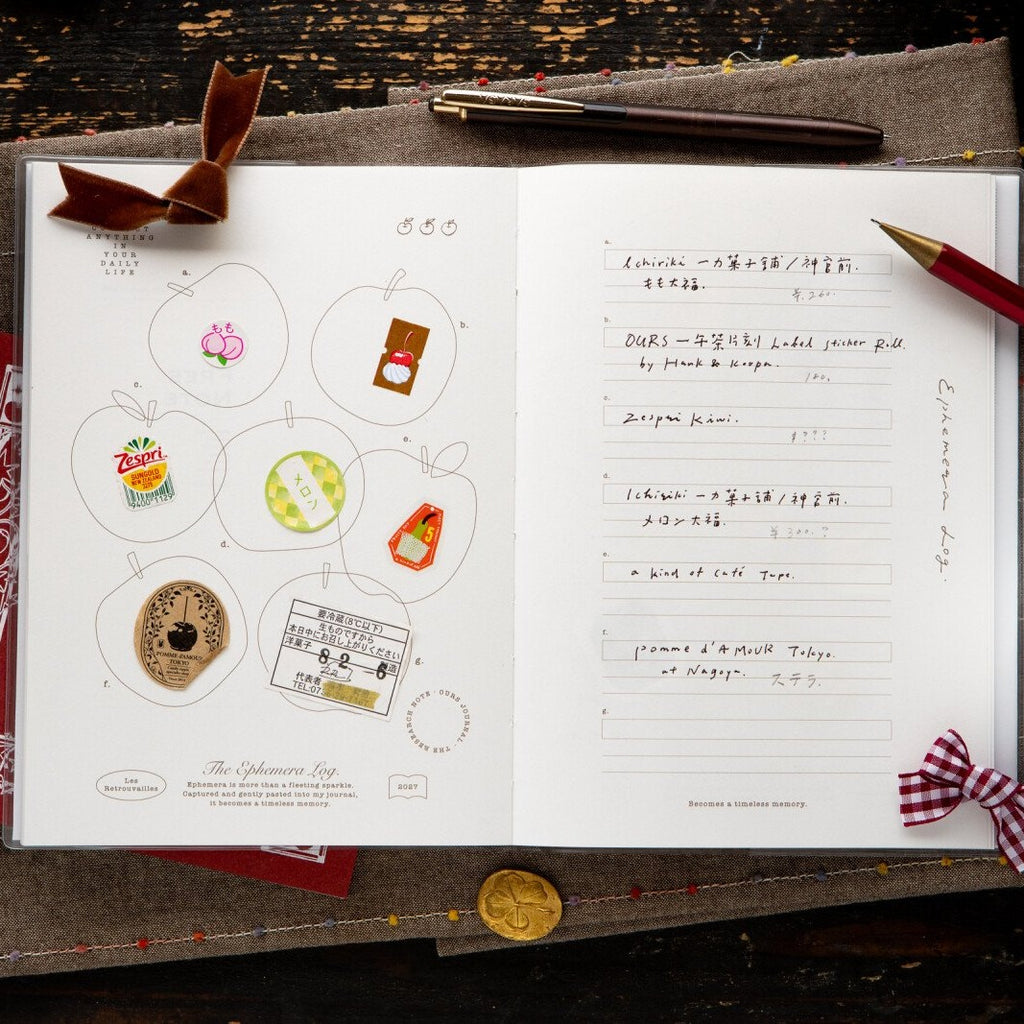 ANYTHING
IN
YOUR
DAILY
LIFE
a.
もも
b.
c.
Zespri
SUNGOLD
NEW ZEALAND
3279
9400 1129
d.
メロン
e.
5
f.
POMME D'AMOUR
TOKYO
g.
要冷蔵(8℃以下)
生ものですから
本日中にお召し上がりください
洋菓子
82 -6
製造
代表者
TEL:07
THE RESEARCH NOTE · OURS JOURNAL
Les
Retrouvailles
The Ephemera Log.
Ephemera is more than a fleeting sparkle.
Captured and gently pasted into my journal,
it becomes a timeless memory.
2027
a.
Ichiriki 一力菓子舗/神宮前.
もも大福.
¥.260.
b.
OURS 一午茶片刻 Label sticker Roll.
by Hank & Koopa.
180.
c.
Zespri Kiwi.
$???
d.
Ichiriki 一力菓子舗/神宮前.
メロン大福.
¥300.?
e.
a kind of Café Tape.
f.
pomme d'AMOUR Tokyo.
at Nagoya.
ステラ.
g.
Becomes a timeless memory.
Ephemera Log.